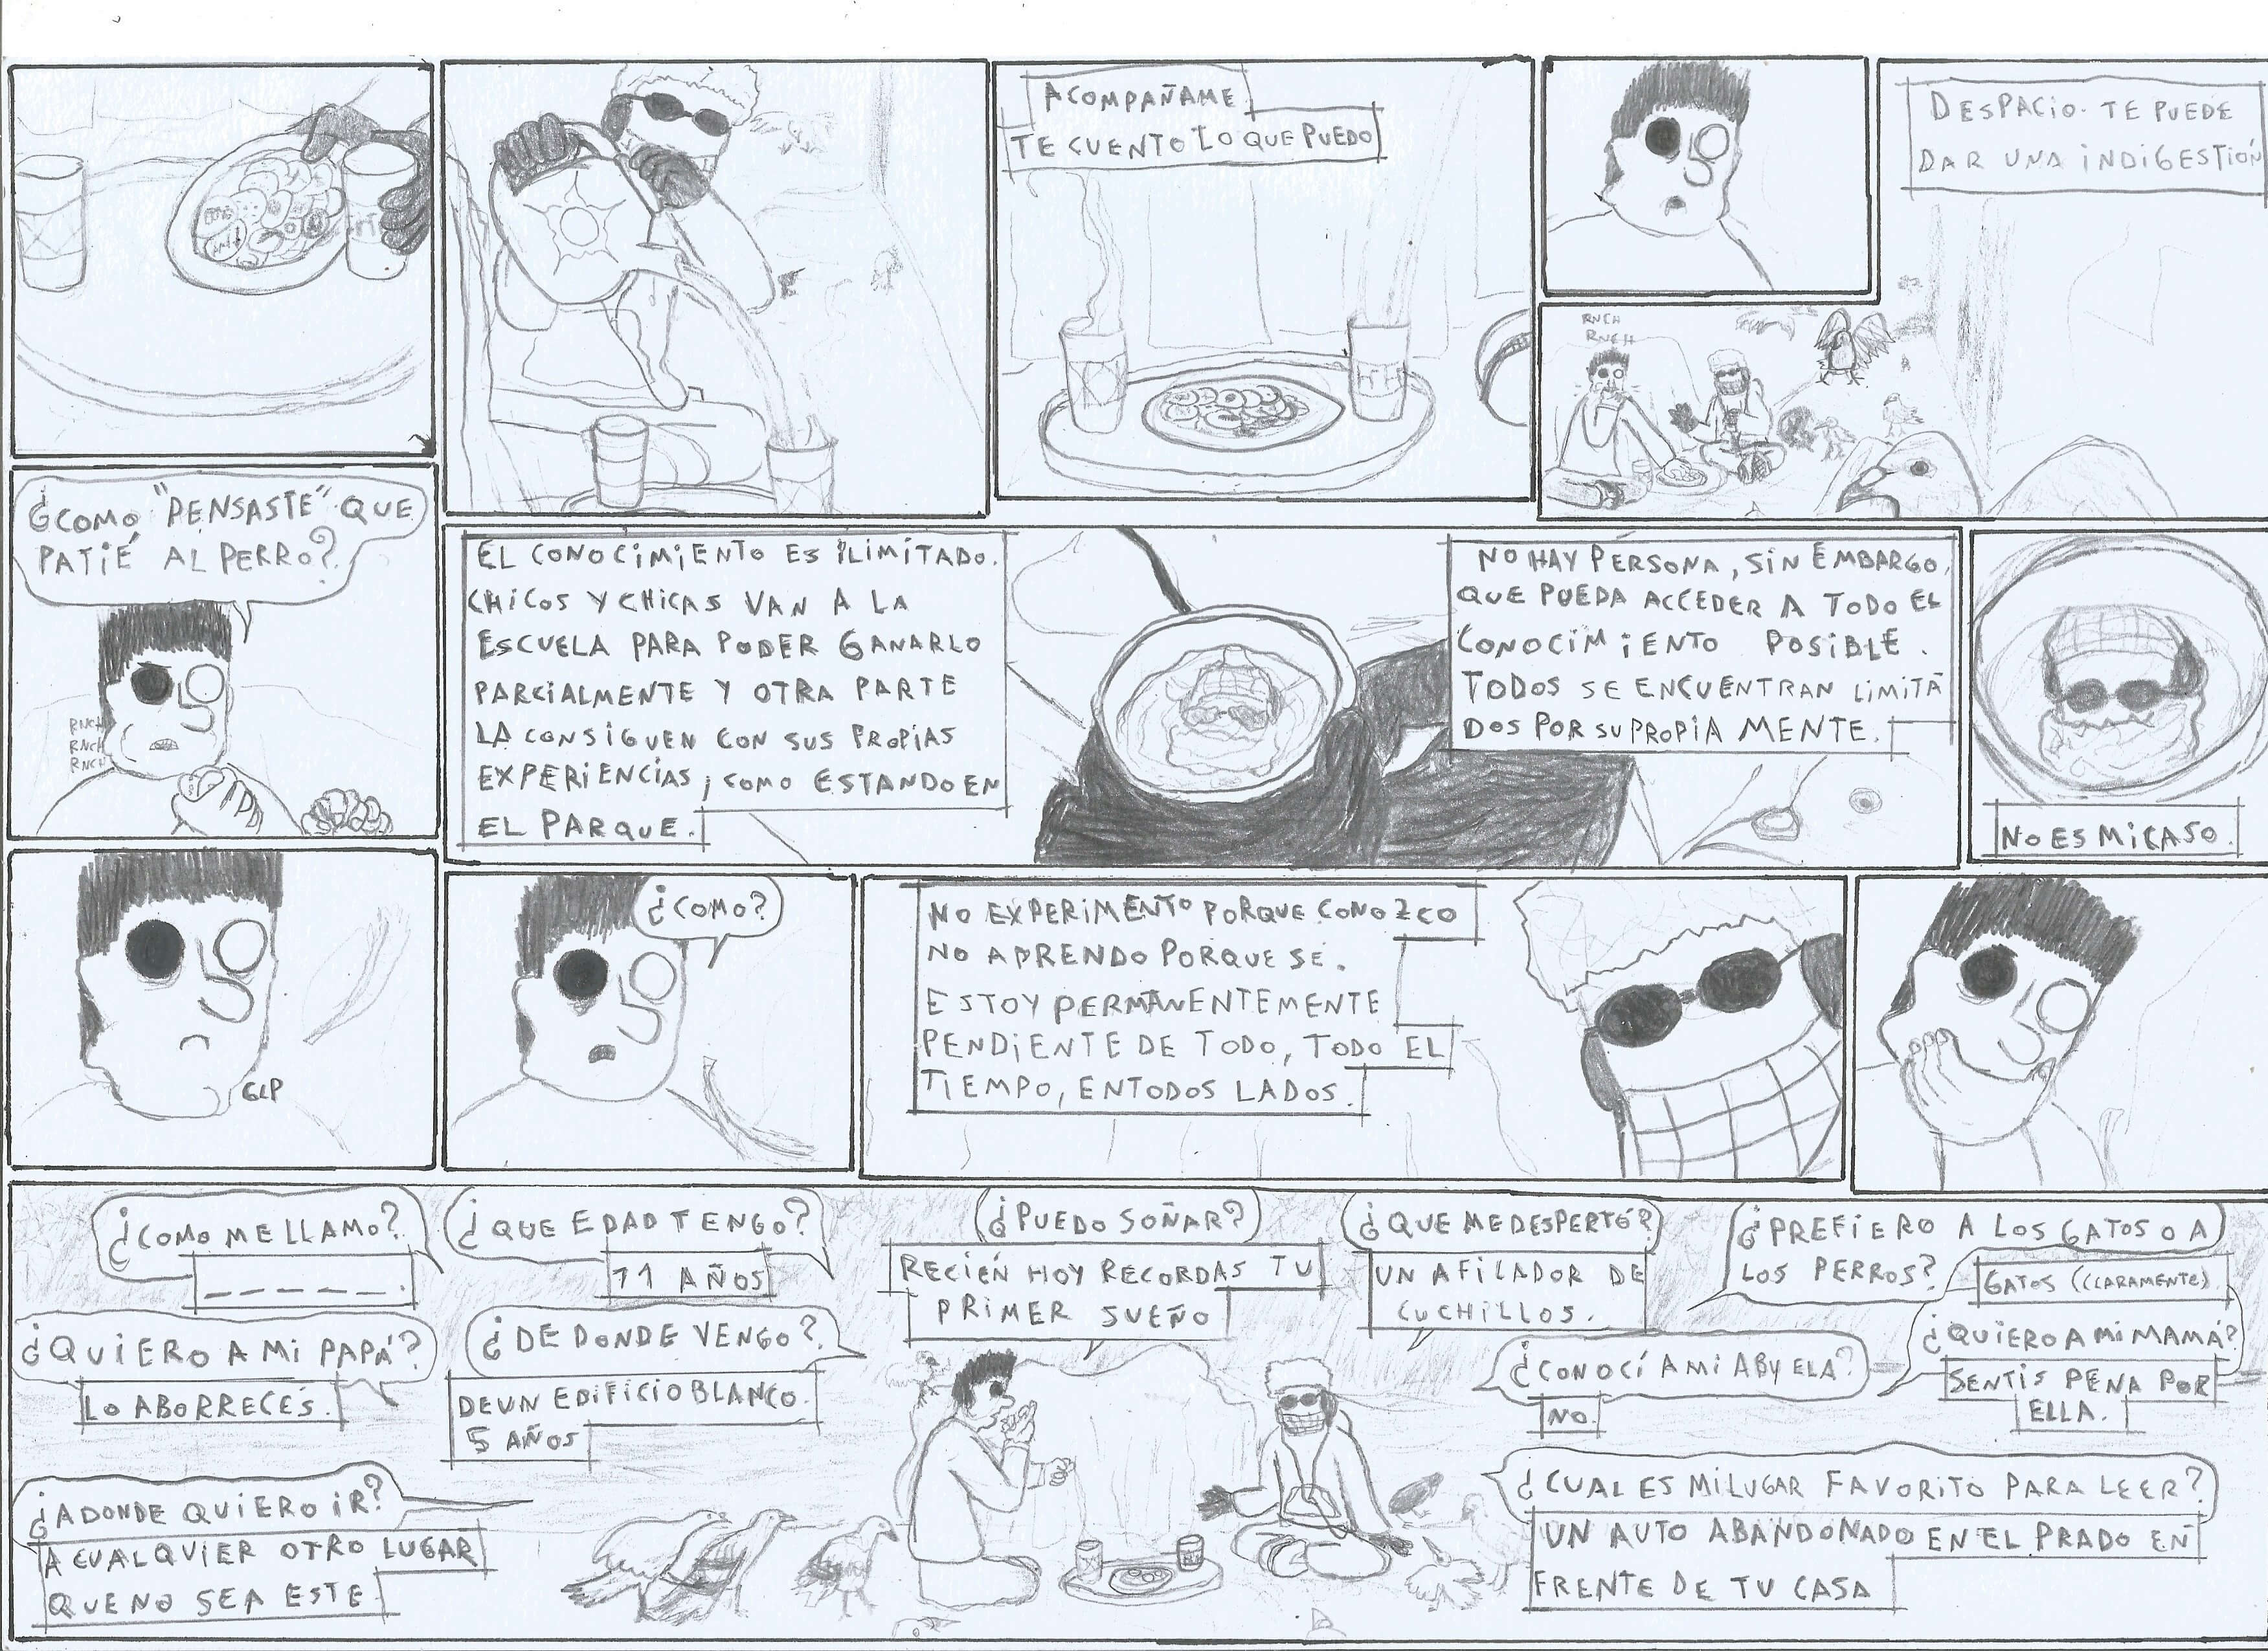 ACOMPAÑAME
TE CUENTO LO QUE PUEDO
DESPACIO. TE PUEDE
DAR UNA INDIGESTIÓN
RNCH
RNCH
¿COMO "PENSASTE" QUE
PATIÉ AL PERRO?
RNCH
RNCH
RNCH
EL CONOCIMIENTO ES ILIMITADO.
CHICOS Y CHICAS VAN A LA
ESCUELA PARA PODER GANARLO
PARCIALMENTE Y OTRA PARTE
LA CONSIGUEN CON SUS PROPIAS
EXPERIENCIAS, COMO ESTANDO EN
EL PARQUE.
NO HAY PERSONA, SIN EMBARGO,
QUE PUEDA ACCEDER A TODO EL
CONOCIMIENTO POSIBLE.
TODOS SE ENCUENTRAN LIMITA
DOS POR SU PROPIA MENTE.
NO ES MI CASO.
GLP
¿COMO?
NO EXPERIMENTO PORQUE CONOZCO
NO APRENDO PORQUE SE.
ESTOY PERMANENTEMENTE
PENDIENTE DE TODO, TODO EL
TIEMPO, EN TODOS LADOS.
¿COMO ME LLAMO?
_ _ _ _ _ _.
¿QUE EDAD TENGO?
11 AÑOS
¿PUEDO SOÑAR?
RECIÉN HOY RECORDAS TU
PRIMER SUEÑO
¿QUE ME DESPERTÓ?
UN AFILADOR DE
CUCHILLOS.
¿PREFIERO A LOS GATOS O A
LOS PERROS?
GATOS (CLARAMENTE)
¿QUIERO A MI PAPÁ?
LO ABORRECÉS.
¿DE DONDE VENGO?
DE UN EDIFICIO BLANCO.
5 AÑOS
¿CONOCÍ A MI ABUELA?
NO.
¿QUIERO A MI MAMÁ?
SENTIS PENA POR
ELLA.
¿A DONDE QUIERO IR?
A CUALQUIER OTRO LUGAR
QUE NO SEA ESTE
¿CUAL ES MI LUGAR FAVORITO PARA LEER?
UN AUTO ABANDONADO EN EL PRADO EN
FRENTE DE TU CASA